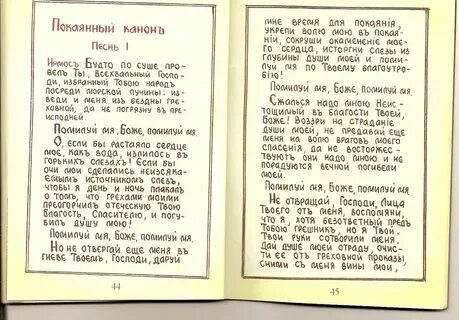 Покаянный канонъ
Песнь I
Ирмосъ: Будто по суше про-
велъ Ты, всехвальный Госпо-
ди, избранный Тобою народъ
посреди морской пучины: из-
веди и меня из бездны гре-
ховной, да не погрязну в пре-
исподней.
Помилуй мя, Боже, помилуй мя.
О, если бы растаяло сердце
мое, какъ вода, излилось в
горькихъ слезахъ! Если бы
очи мои сделались неизсяка-
емымъ источникомъ слезъ,
чтобы я день и ночь плакалъ
о томъ, что грехами моими
преогорчилъ отеческую Твою
Благость, Спасителю, и погу-
билъ душу мою!
Помилуй мя, Боже, помилуй мя.
Но не отвергай еще меня в
гневе Твоемъ, Господи, даруй
44
мне время для покаянiя,
укрепи волю мою в покая-
нiи, сокруши окаменение мое-
го сердца, исторгни слезы из
глубины души моей и поми-
луй мя по Твоему благоутро-
бiю!
Помилуй мя, Боже, помилуй мя.
Сжалься надо мною Неис-
тощимый в благости Твоей,
Боже! Воззри на страданiе
души моей, не предавай еще
меня на волю враговъ моего
спасения, да не восторже-
ствуютъ они надо мною и не
порадуются вечной погибели
моей.
Помилуй мя, Боже, помилуй мя.
Не отвращай, Господи, Лица
Твоего отъ меня, воспомяни,
что я, хотя безответный предъ
Тобою грешникъ, но я Твой.
Твои руки сотворили меня.
Дай душе моей отраду, очисти
ее отъ греховной проказы,
сними съ меня вины мои,
45